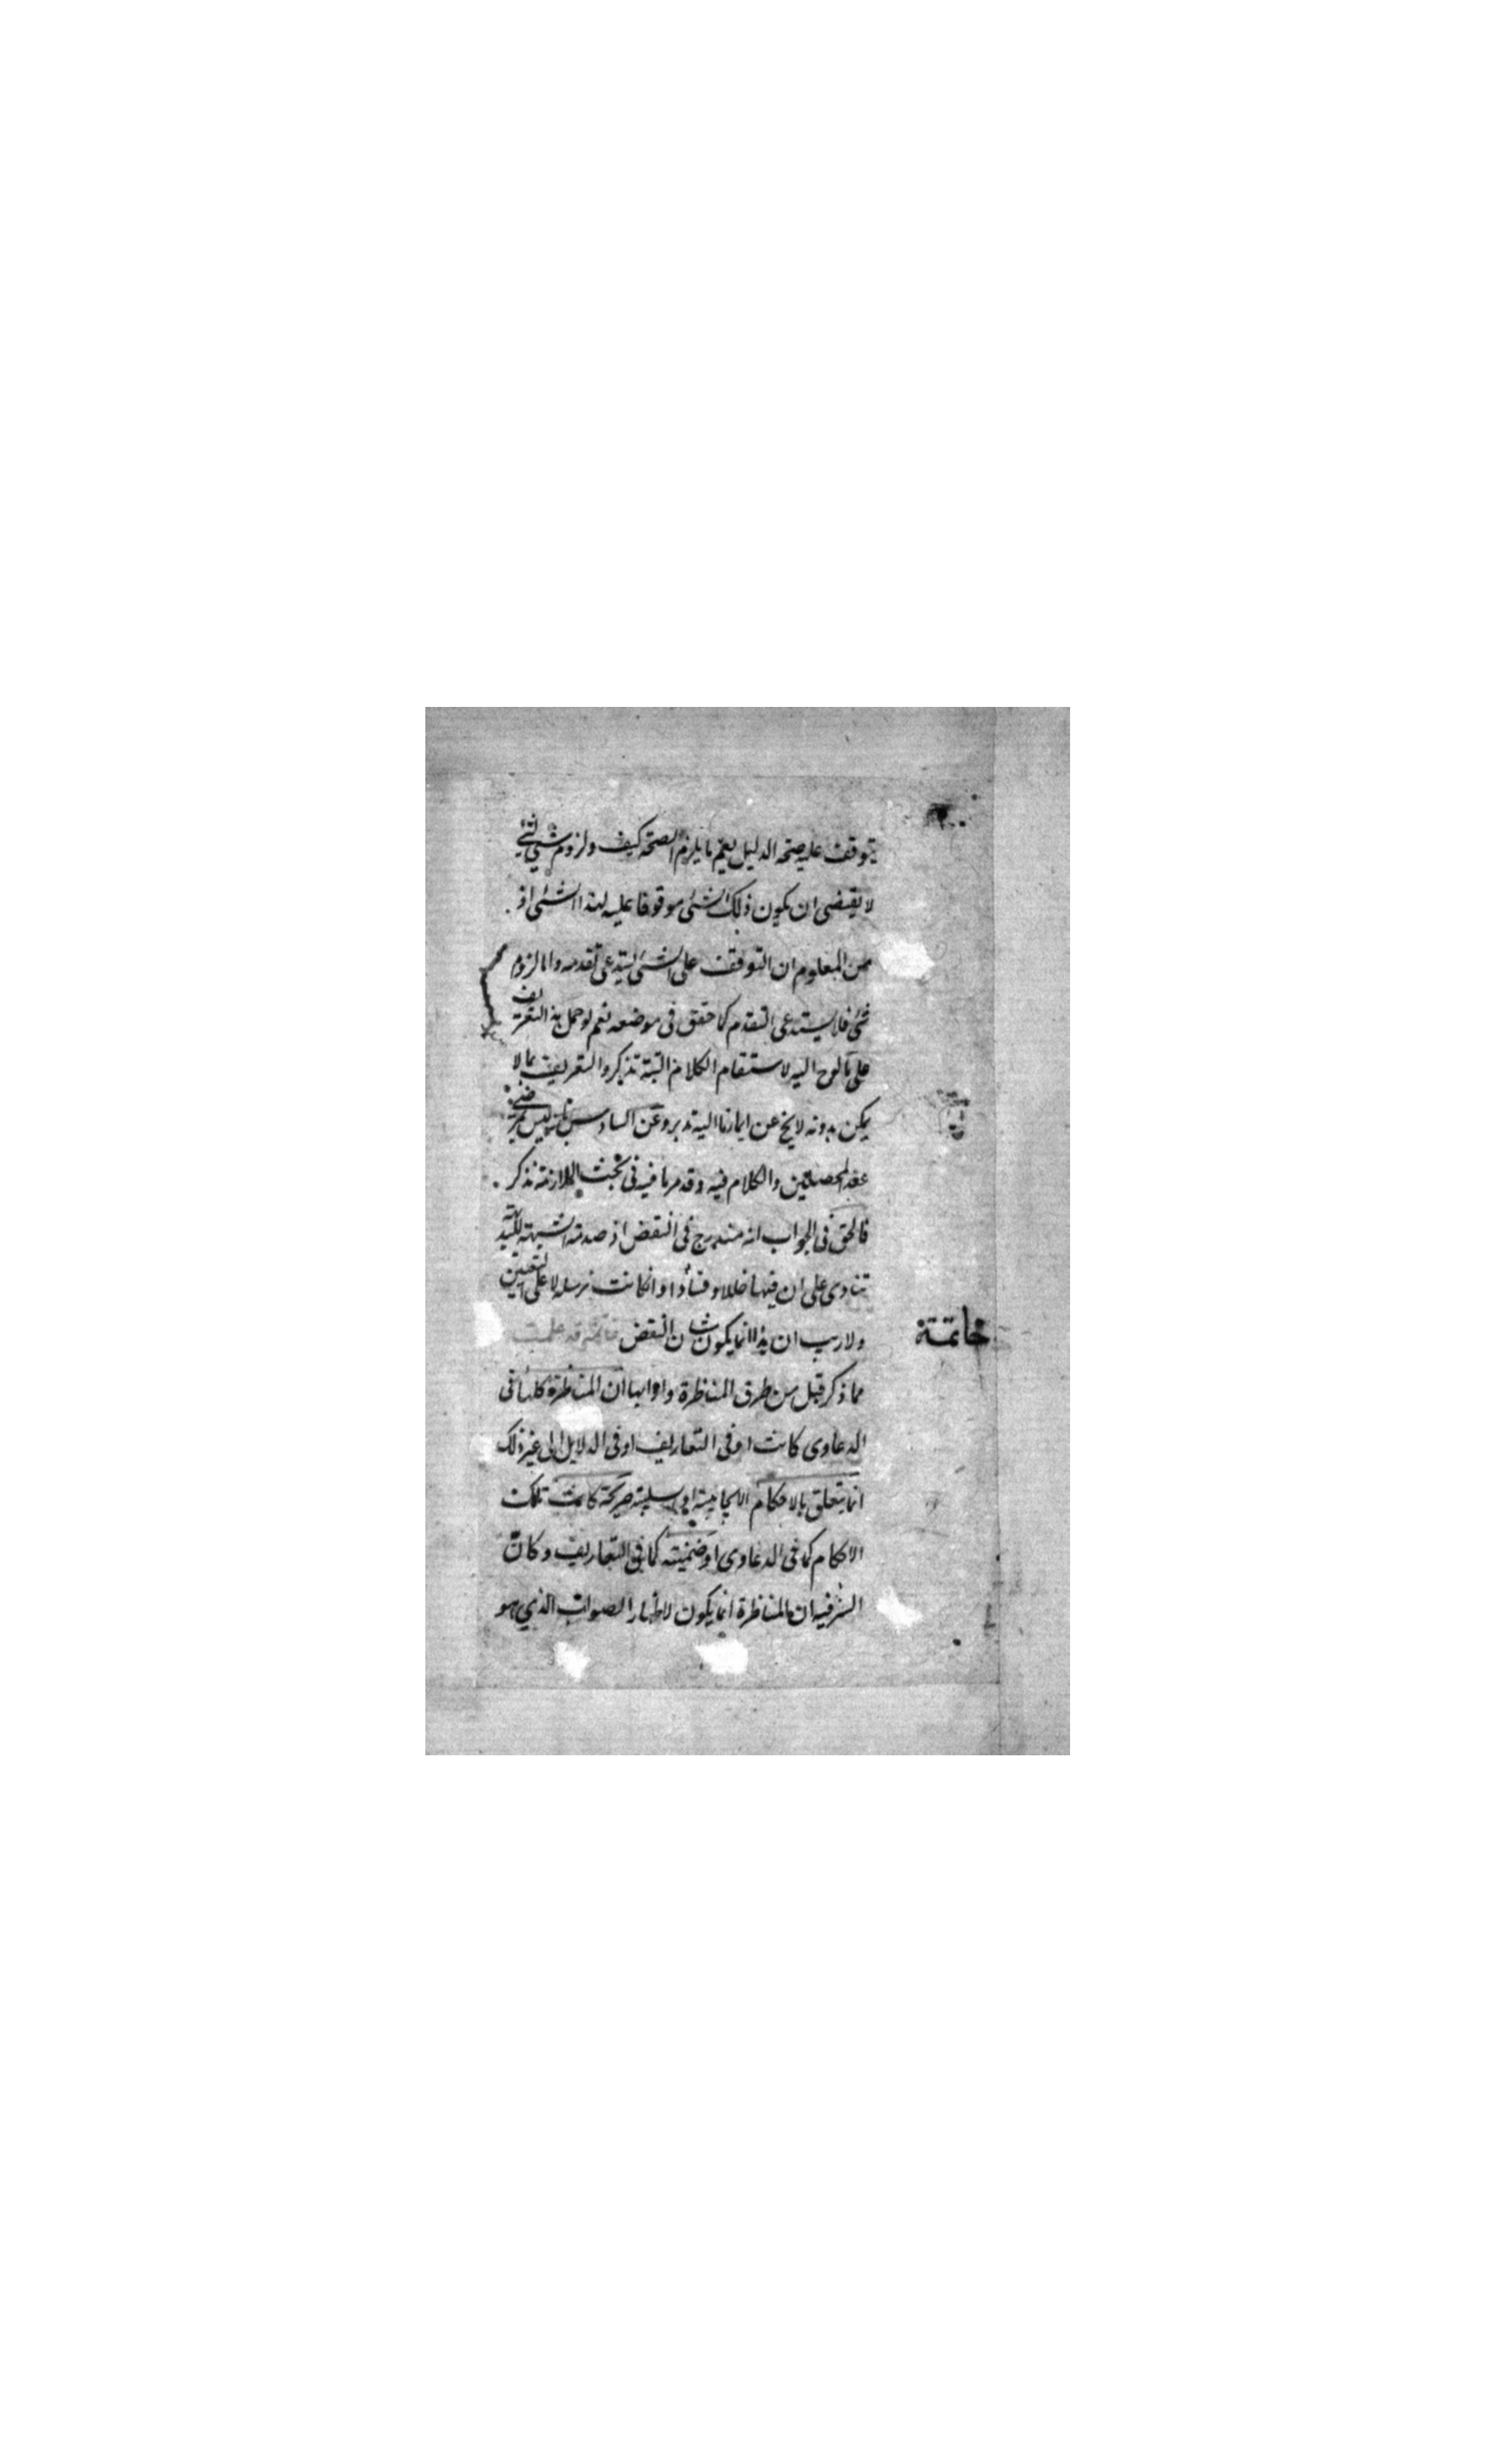 يتوقف عليه صحة الدليل نعم ما يلزم الصحة كيف ولزوم شئ لشئ
لا يقتضى ان يكون ذلك الشئ موقوفا عليه لهذا الشئ اذ
من المعلوم ان التوقف على الشئ يستدعى تقدمه واما لزوم
شئ فلا يستدعى التقدم كما حقق فى موضعه نعم لو حمل هذا التعريف
على ما لوح اليه لاستقام الكلام البتة تذكر والتعريف بما لا
يمكن بدونه لا يخ عن ايمارنا اليه تدبر وعن السادس بانه ليس بمرضى
عند المحصلين والكلام فيه وقد مر ما فيه فى بحث الملازمة تذكر
فالحق فى الجواب انه مندرج فى النقض اذ صدمة الشبهة للبديهة
تنادى على ان فيها خللا وفسادا وانكانت مرسلة لا على التعيين
ولا ريب ان هذا انما يكون شان النقض خاتمة قد علمت
خاتمة
مما ذكر قبل من طرق المناظرة وادابها ان المناظرة كلها فى
الدعاوى كانت او فى التعاريف او فى الدلايل الى غير ذلك
انما يتعلق بالاحكام الايجابية او سلبية صريحة كانت تلك
الاحكام كما فى الدعاوى او ضمنية كما فى التعاريف وكان
السر فيه ان المناظرة انما يكون لاظهار الصواب الذى هو